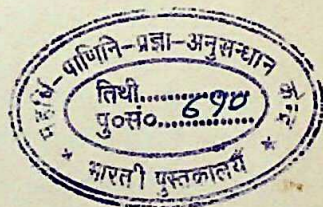 महर्षि-पाणिनि-प्रज्ञा-अनुसन्धान केन्द्र
तिथी..............
पु०सं०.....690.....
* भारती पुस्तकालय *